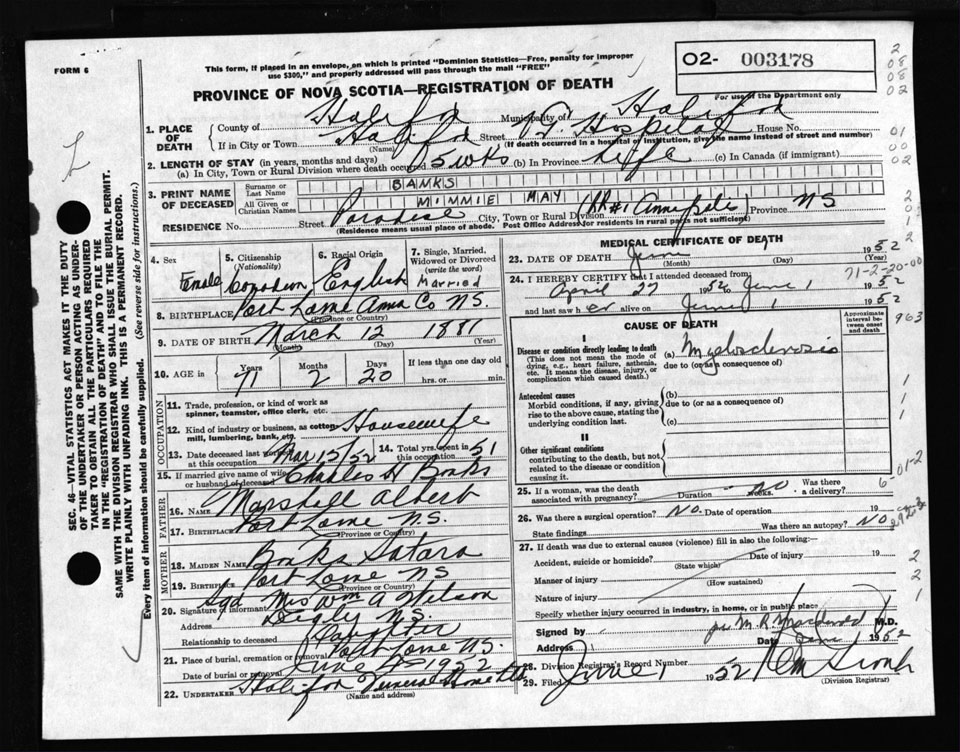 FORM 6
This form, if placed in an envelope, on which is printed "Dominion Statistics—Free, penalty for improper
use $300," and properly addressed will pass through the mail "FREE"
O2- 003178
For use of the Department only
PROVINCE OF NOVA SCOTIA—REGISTRATION OF DEATH
SEC. 46—VITAL STATISTICS ACT MAKES IT THE DUTY
OF THE UNDERTAKER OR PERSON ACTING AS UNDER-
TAKER TO OBTAIN ALL THE PARTICULARS REQUIRED
IN THE "REGISTRATION OF DEATH" AND TO FILE THE
SAME WITH THE DIVISION REGISTRAR WHO SHALL ISSUE THE BURIAL PERMIT.
WRITE PLAINLY WITH UNFADING INK. THIS IS A PERMANENT RECORD.
Every item of information should be carefully supplied. (See reverse side for instructions.)
1. PLACE OF DEATH
County of Halifax Municipality of Halifax
If in City or Town Halifax Street V. G. Hospital House No.
(Name) (If death occurred in a hospital or institution, give the name instead of street and number)
2. LENGTH OF STAY (in years, months and days)
(a) In City, Town or Rural Division where death occurred 5 wks (b) In Province Life (c) In Canada (if immigrant)
3. PRINT NAME OF DECEASED
Surname or Last Name BANKS
All Given or Christian Names MIMMIE MAY
RESIDENCE No. Street Paradise City, Town or Rural Division RR#1 Province NS
(Residence means usual place of abode. Post Office Address for residents in rural parts not sufficient)
4. Sex Female
5. Citizenship (Nationality) Canadian
6. Racial Origin English
7. Single, Married, Widowed or Divorced (write the word) Married
8. BIRTHPLACE Port Lorne Anna Co N.S.
(Province or Country)
9. DATE OF BIRTH March 12 1881
(Month) (Day) (Year)
10. AGE in Years 71 Months 2 Days 20 If less than one day old hrs. or min.
OCCUPATION
11. Trade, profession, or kind of work as
spinner, teamster, office clerk, etc.
12. Kind of industry or business, as cotton-
mill, lumbering, bank, etc. Housewife
13. Date deceased last worked at this occupation Mar 15/52 14. Total yrs. spent in this occupation 51
15. If married give name of wife or husband of deceased Charles H Banks
FATHER
16. Name Marshall Albert
17. Birthplace Port Lorne N.S.
(Province or Country)
MOTHER
18. MAIDEN NAME Banks
19. BIRTHPLACE Port Lorne NS
(Province or Country)
20. Signature of informant Sgd Mrs Wm A Wilson
Address Digby N.S.
Relationship to deceased Daughter
21. Place of burial, cremation or removal Port Lorne N.S.
Date of burial or removal June 4 1952
22. UNDERTAKER Halifax Funeral Home Ltd
(Name and address)
MEDICAL CERTIFICATE OF DEATH
23. DATE OF DEATH June 1 1952
(Month) (Day) (Year)
24. I HEREBY CERTIFY that I attended deceased from
71-2-20-00
April 27 1952 to June 1 1952
and last saw her alive on June 1 1952
CAUSE OF DEATH
Approximate interval between onset and death
963
I
Disease or condition directly leading to death
(This does not mean the mode of
dying, e.g., heart failure, asthenia,
etc. It means the disease, injury, or
complication which caused death.)
(a) Myelosclerosis
due to (or as a consequence of)
Antecedent causes
Morbid conditions, if any, giving
rise to the above cause, stating the
underlying condition last.
(b)
due to (or as a consequence of)
(c)
II
Other significant conditions
contributing to the death, but not
related to the disease or condition
causing it.
25. If a woman, was the death associated with pregnancy? Duration weeks. Was there a delivery? no
26. Was there a surgical operation? No. Date of operation 19
State findings Was there an autopsy? NO
27. If death was due to external causes (violence) fill in also the following:—
Accident, suicide or homicide? Date of injury 19
(State which)
Manner of injury
(How sustained)
Nature of injury
Specify whether injury occurred in industry, in home, or in public place
Signed by M.D.
Address Date June 1 1952
28. Division Registrar's Record Number
29. Filed June 1 1952
(Division Registrar)